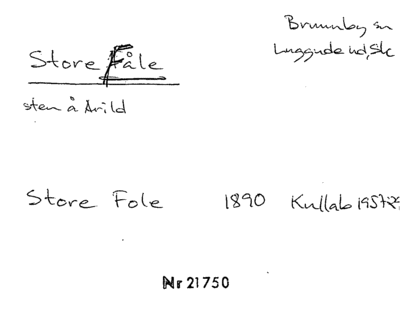 Brunnby sn
Store Fåle
Luggude hd, Sk
sten å Arild
Store Fole 1890 Kullab 1957-29
Nr 21750